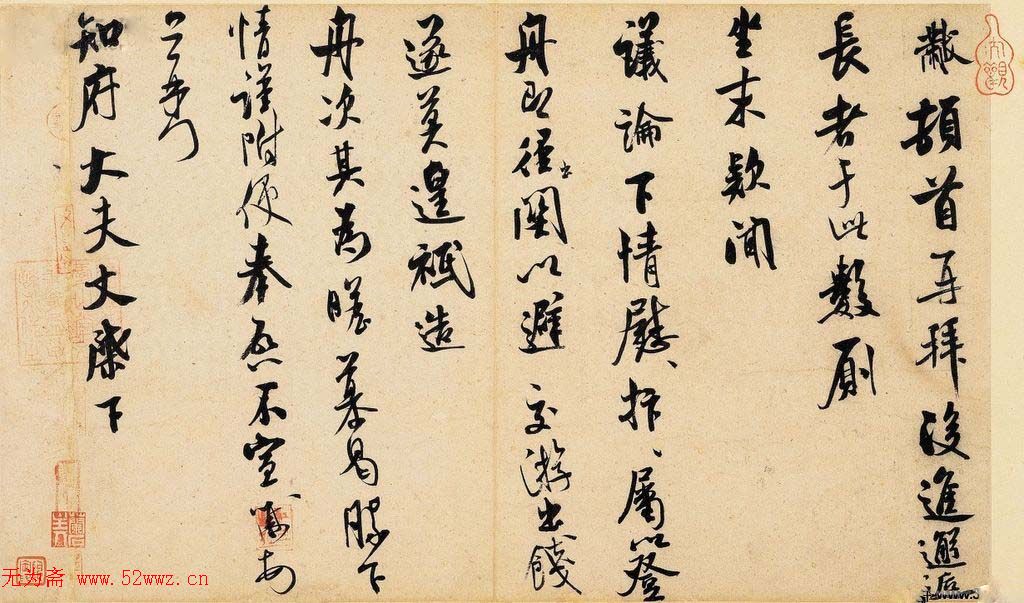 黻頓首再拜後進邂逅
長者于此數厠
坐末款聞
議論下情慰、抃、屬以登
舟即徑出關以避交游出餞
遂莫遑祗造
舟次其為瞻慕曷勝下
情謹附便奉啟不宣黻
知府大夫丈棨下
无为斋 www.52wwz.cn